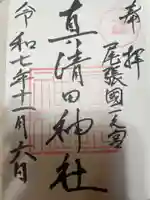 奉拝
尾張國一之宮
真清田神社
令和七年十一月六日